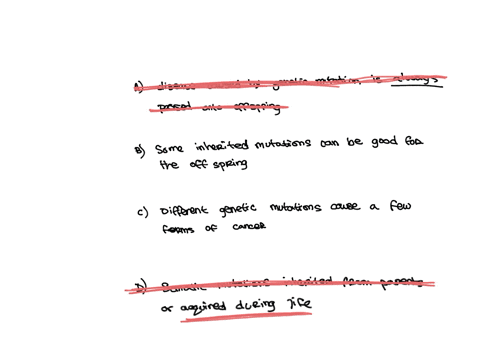 A) disease caused by genetic mutation, is always
passed onto offspring
B) Some inherited mutations can be good for
the off spring
C) Different genetic mutations cause a few
forms of cancer
D) Somatic mutations inherited from parents
or acquired during life